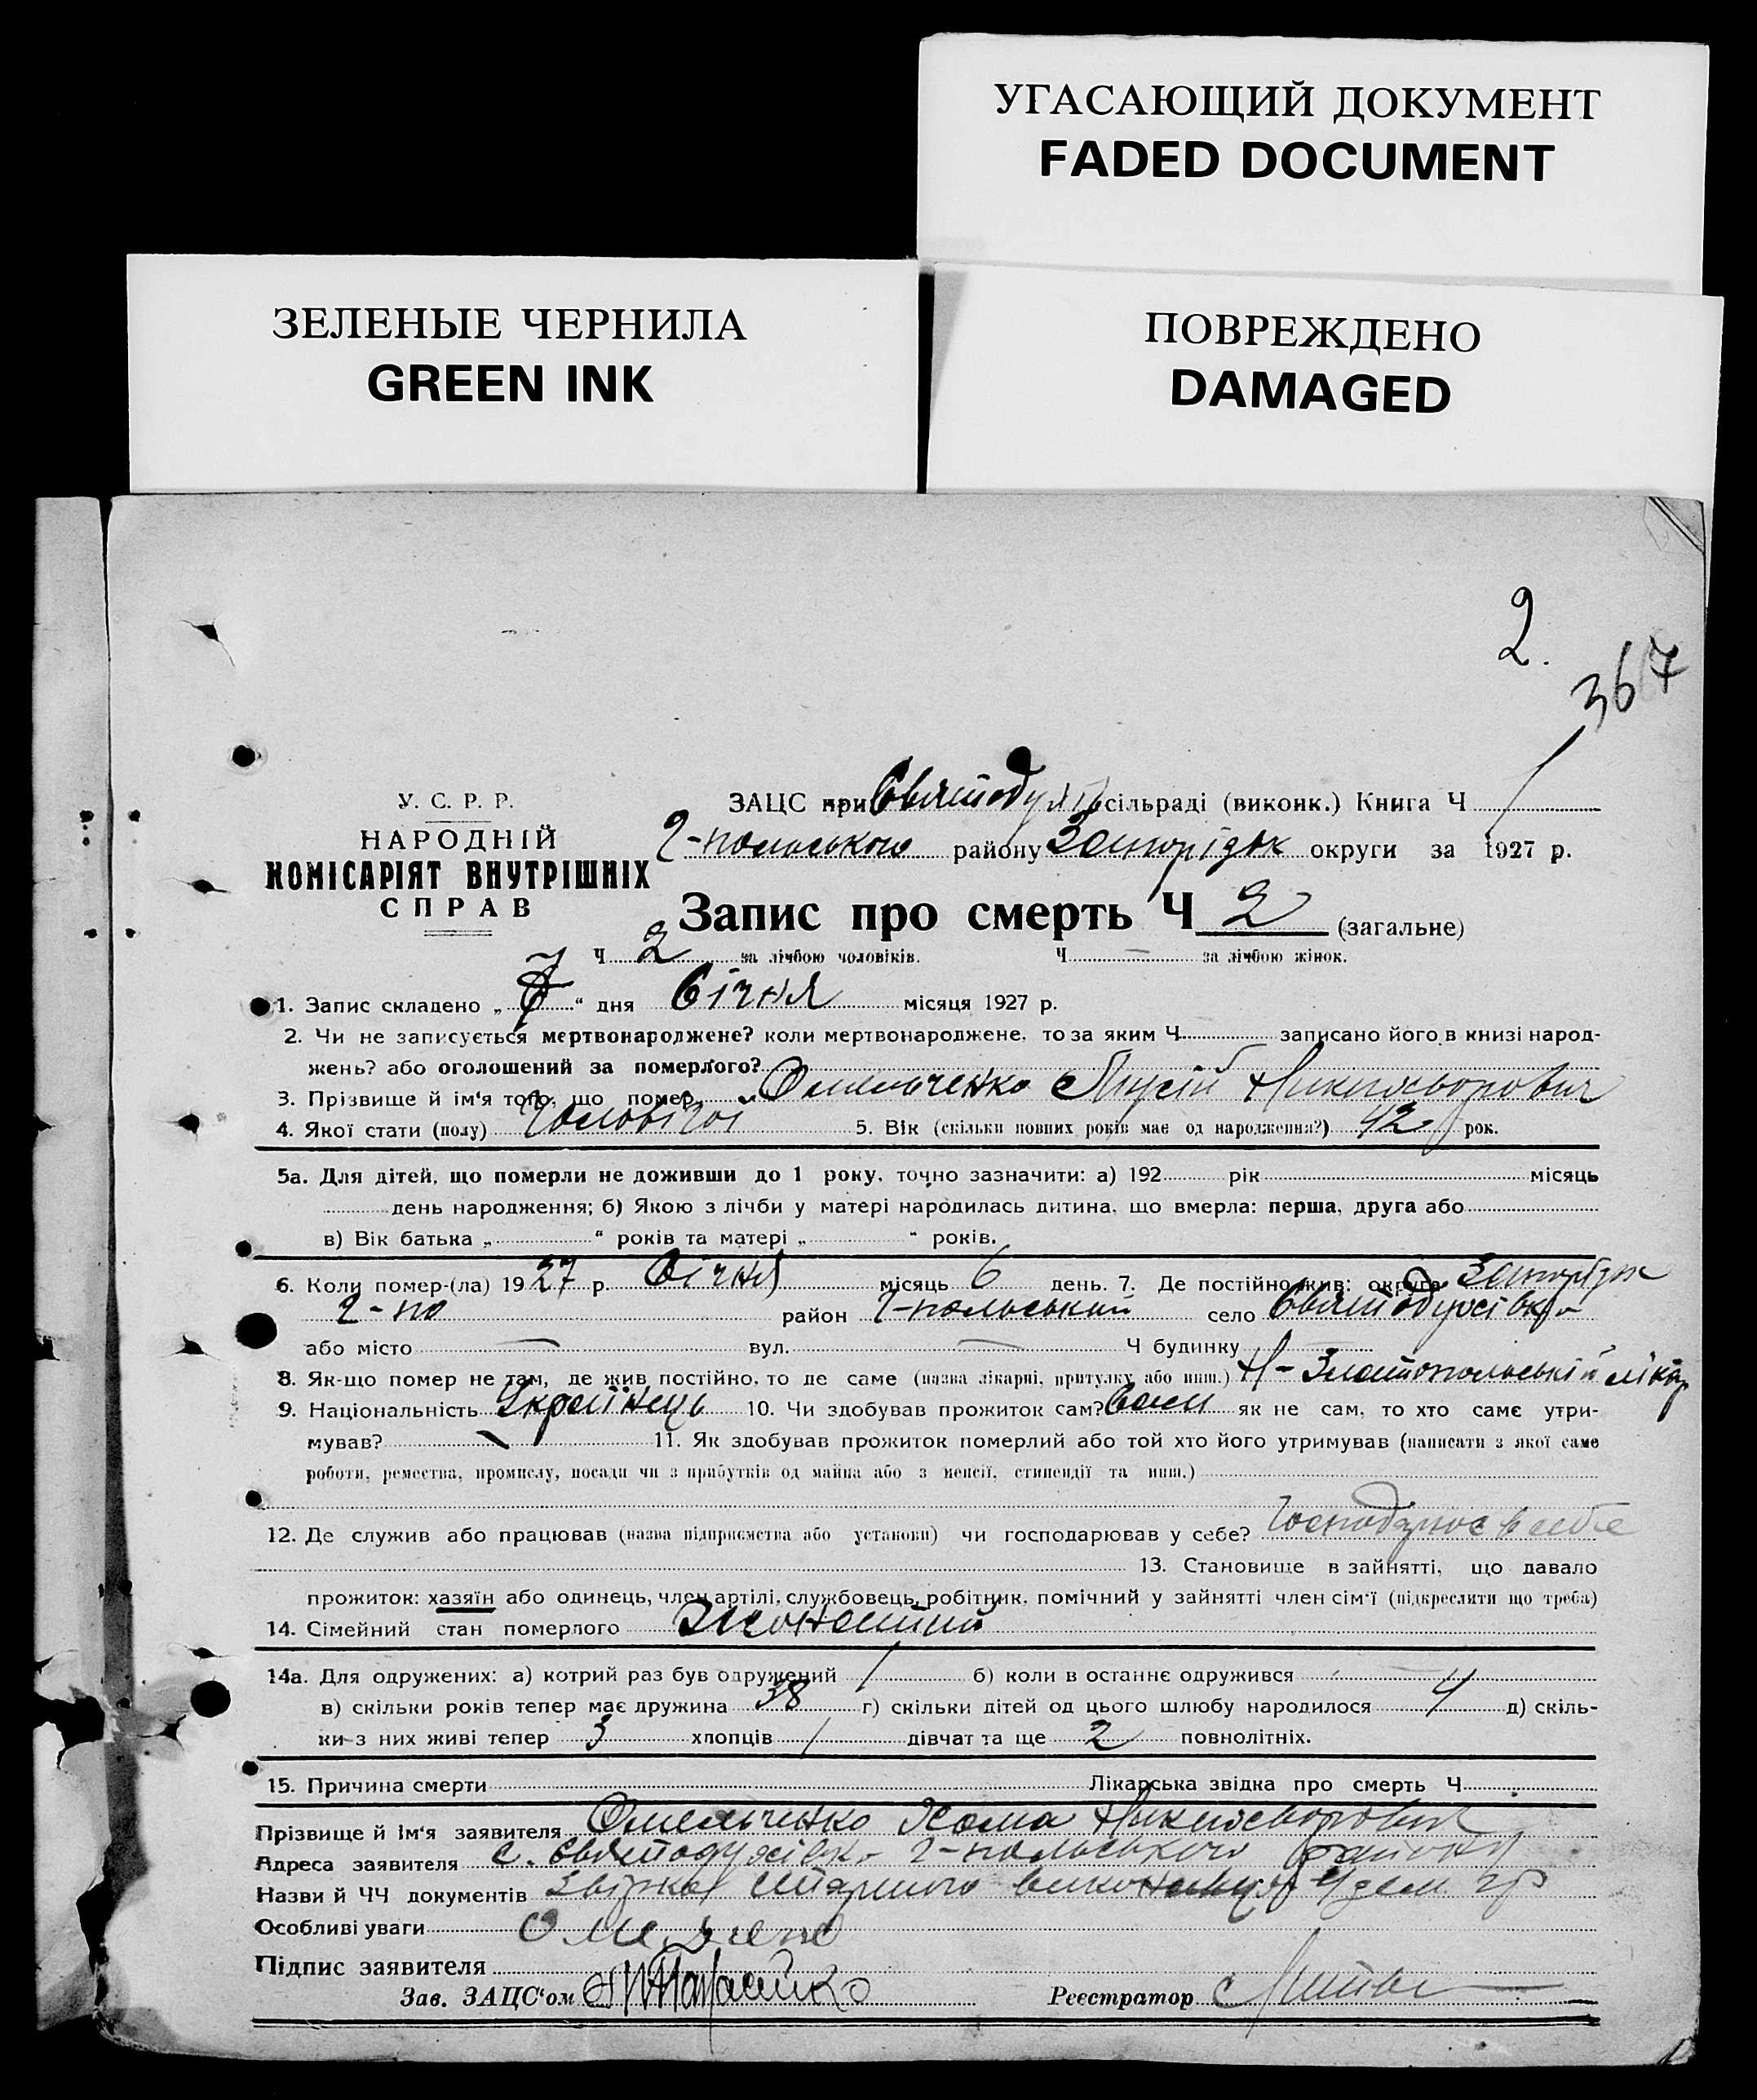 УГАСАЮЩИЙ ДОКУМЕНТ
FADED DOCUMENT
ЗЕЛЕНЫЕ ЧЕРНИЛА
GREEN INK
ПОВРЕЖДЕНО
DAMAGED
2.
367
У. С. Р. Р.
НАРОДНІЙ
КОМІСАРІЯТ ВНУТРІШНІХ
СПРАВ
ЗАЦС при Святоду сільраді (виконк.) Книга Ч
2-польського району Запоріж округи за 1927 р.
Запис про смерть Ч 2 (загальне)
Ч 2 за лічбою чоловіків. Ч — за лічбою жінок.
1. Запис складено „ 7 “ дня Січня місяця 1927 р.
2. Чи не записується мертвонароджене? коли мертвонароджене, то за яким Ч записано його в книзі народ-
жень? або оголошений за померлого?
3. Прізвище й ім'я того, що помер Омельченко Мусій Никифорович
4. Якої стати (полу) Чоловічої 5. Вік (скільки повних років має од народження?) 42 рок.
5а. Для дітей, що померли не доживши до 1 року, точно зазначити: а) 192 рік місяць
день народження; б) Якою з лічби у матері народилась дитина, що вмерла: перша, друга або
в) Вік батька „ “ років та матері „ “ років.
6. Коли помер-(ла) 1927 р. Січня місяць 6 день. 7. Де постійно жив: округа Запоріж
район 2-польський село Святодухівка
або місто — вул. — Ч будинку
8. Як-що помер не там, де жив постійно, то де саме (назва лікарні, притулку або инш.) Н-Златопольській лікар
9. Національність Українець 10. Чи здобував прожиток сам? Сам як не сам, то хто саме утри-
мував? 11. Як здобував прожиток померлий або той хто його утримував (написати з якої саме
роботи, ремества, промислу, посади чи з прибутків од майна або з пенсії, стипендії та инш.)
12. Де служив або працював (назва підприємства або установи) чи господарював у себе? Господарює в себе
13. Становище в зайнятті, що давало
прожиток: хазяїн або одинець, член артілі, службовець, робітник, помічний у зайнятті член сім'ї (підкреслити що треба)
14. Сімейний стан померлого Жонатий
14а. Для одружених: а) котрий раз був одружений 1 б) коли в останнє одружився
в) скільки років тепер має дружина 38 г) скільки дітей од цього шлюбу народилося 4 д) скіль-
ки з них живі тепер 3 хлопців 1 дівчат та ще 2 повнолітніх.
15. Причина смерти Лікарська звідка про смерть Ч
Прізвище й ім'я заявителя Омельченко Хома Никифорович
Адреса заявителя с. Святодухівка 2-польського району
Назви й ЧЧ документів Звідка старшого виконавця
Особливі уваги
Підпис заявителя
Зав. ЗАЦС'ом
Реєстратор